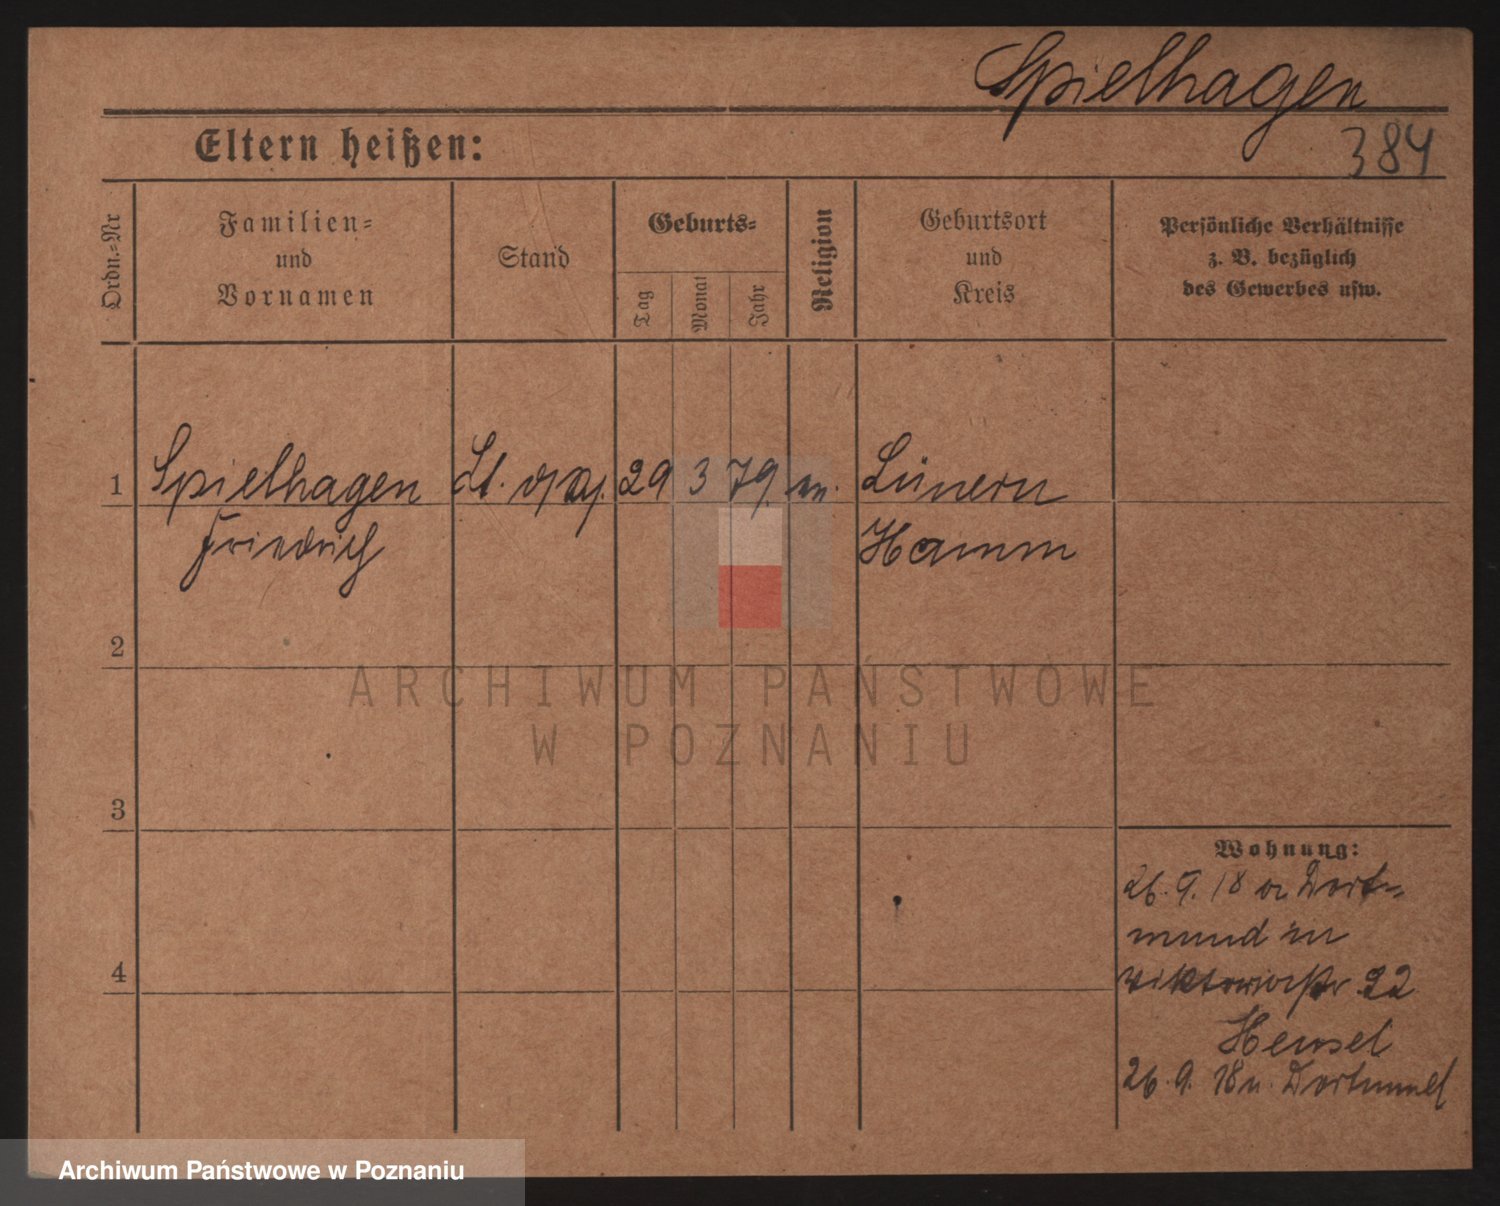 Spielhagen
384
Eltern heißen:
Ordn.=Nr
Familien=
und
Vornamen
Stand
Geburts=
Tag
Monat
Jahr
Religion
Geburtsort
und
Kreis
Persönliche Verhältnisse
z. B. bezüglich
des Gewerbes usw.
1 Spielhagen Lt. 29 3 79 Lünern
Friedrich Hamm
2
ARCHIWUM PAŃSTWOWE
W POZNANIU
3
Wohnung:
26. 9. 18 Dort=
mund in
Viktoriastr 22
4
Hensel
26. 9. 18 n. Dortmund
Archiwum Państwowe w Poznaniu